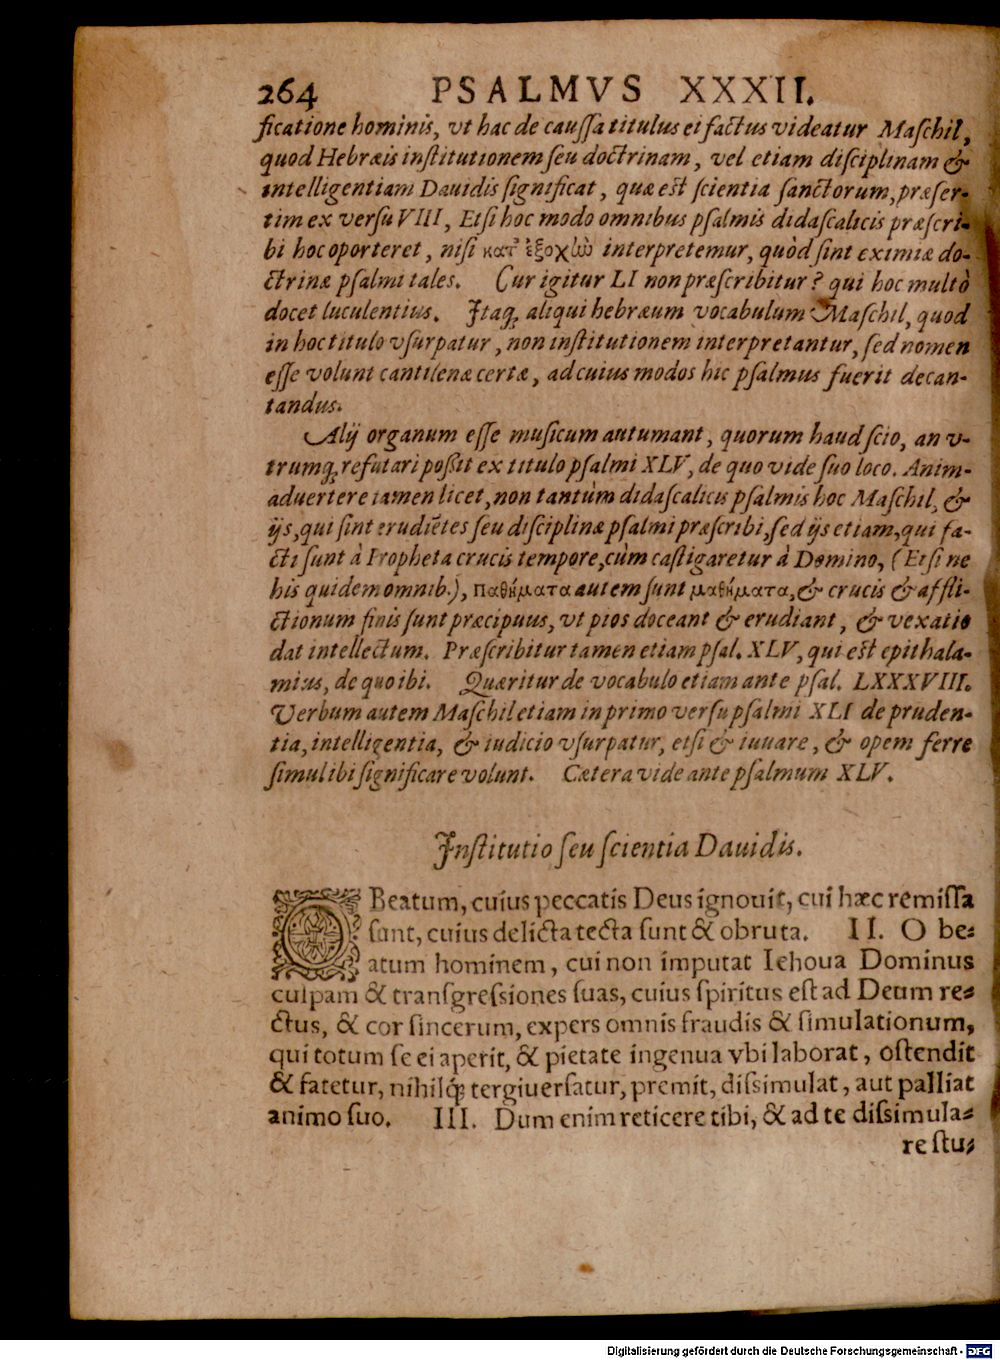 264 PSALMVS XXXII.
ficatione hominis, vt hac de cauſſa titulus ei factus videatur Maſchil,
quod Hebræis inſtitutionem ſeu doctrinam, vel etiam diſciplinam &
intelligentiam Dauidis ſignificat, quæ eſt ſcientia ſanctorum, præſer-
tim ex verſu VIII, Etſi hoc modo omnibus pſalmis didaſcalicis præſcri-
bi hoc oporteret, niſi κατ' ἐξοχὼ interpretemur, quòd ſint eximiæ do-
ctrinæ pſalmi tales. Cur igitur LI non præſcribitur? qui hoc multò
docet luculentius. Itaq; aliqui hebræum vocabulum Maſchil, quod
in hoc titulo vſurpatur, non inſtitutionem interpretantur, ſed nomen
eſſe volunt cantilenæ certæ, ad cuius modos hic pſalmus fuerit decan-
tandus.
Alij organum eſſe muſicum autumant, quorum haud ſcio, an v-
trumq; refutari poßit ex titulo pſalmi XLV, de quo vide ſuo loco. Anim-
aduertere tamen licet, non tantùm didaſcalicis pſalmis hoc Maſchil, &
ijs, qui ſint erudiētes ſeu diſciplinæ pſalmi præſcribi, ſed ijs etiam, qui fa-
cti ſunt à Propheta crucis tempore, cùm caſtigaretur à Domino, (Etſi ne
his quidem omnib.), παθήματα autem ſunt μαθήματα, & crucis & affli-
ctionum finis ſunt præcipuus, vt pios doceant & erudiant, & vexatio
dat intellectum. Præſcribitur tamen etiam pſal. XLV, qui eſt epithala-
mius, de quo ibi. Quæritur de vocabulo etiam ante pſal. LXXXVIII.
Verbum autem Maſchil etiam in primo verſu pſalmi XLI de pruden-
tia, intelligentia, & iudicio vſurpatur, etſi & iuuare, & opem ferre
ſimul ibi ſignificare volunt. Cætera vide ante pſalmum XLV.
Inſtitutio ſeu ſcientia Dauidis.
O Beatum, cuius peccatis Deus ignouit, cui hæc remiſſa
ſunt, cuius delicta tecta ſunt & obruta. II. O be-
atum hominem, cui non imputat Iehoua Dominus
culpam & tranſgreſsiones ſuas, cuius ſpiritus eſt ad Deum re-
ctus, & cor ſincerum, expers omnis fraudis & ſimulationum,
qui totum ſe ei aperit, & pietate ingenua vbi laborat, oſtendit
& fatetur, nihilq; tergiuerſatur, premit, diſsimulat, aut palliat
animo ſuo. III. Dum enim reticere tibi, & ad te diſsimula-
re ſtu-
Digitalisierung gefördert durch die Deutsche Forschungsgemeinschaft - DFG